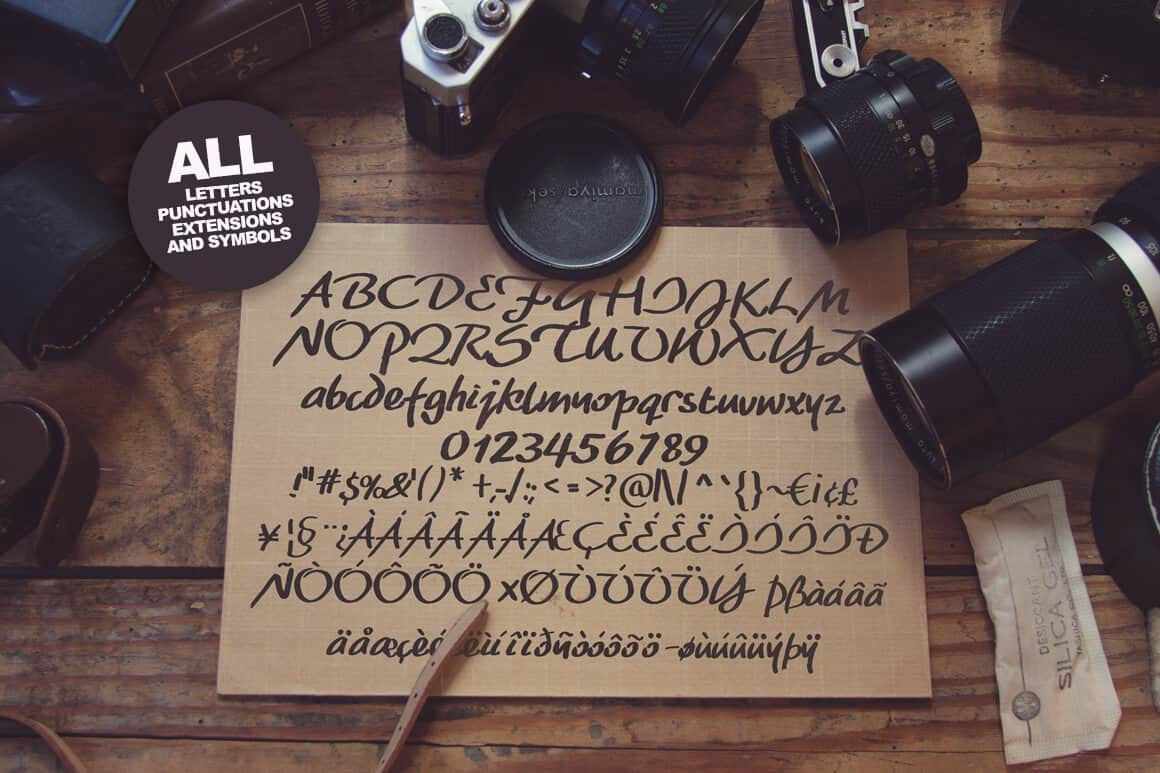 ALL
LETTERS
PUNCTUATIONS
EXTENSIONS
AND SYMBOLS
mamiya/sekor
ABCDEFGHIJKLM
NOPQRSTUVWXYZ
abcdefghijklmnopqrstuvwxyz
0123456789
!"#$%&'()* +,-./:;<=>?@[\]^`{}~€¡¢£
¥¦§¨¿ÀÁÂÃÄÅÆÇÈÉÊËÌÍÎÏÐ
ÑÒÓÔÕÖ×ØÙÚÛÜÝ Þßàáâã
äåæçèéëìíîïðñòóôõö-øùúûüýþÿ
DESICCANT
SILICA GEL